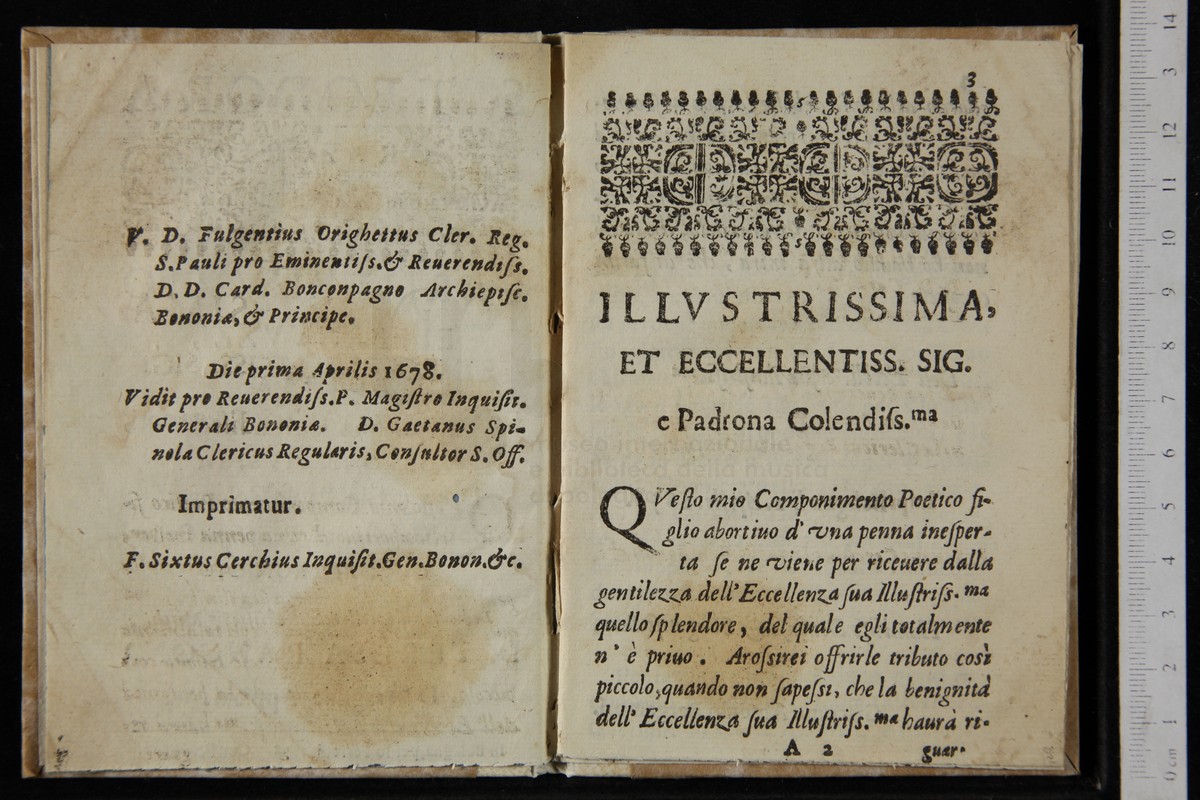 V. D. Fulgentius Orighettus Cler. Reg.
S.Pauli pro Eminentiſs.& Reuerendiſs.
D.D. Card. Bonconpagno Archiepiſc.
Bononiæ,& Principe.
Die prima Aprilis 1678.
Vidit pro Reuerendiſs.P. Magiſtro Inquiſit.
Generali Bononiæ. D. Gaetanus Spi-
nola Clericus Regularis, Conſultor S. Off.
Imprimatur.
F. Sixtus Cerchius Inquiſit.Gen.Bonon.&c.
3
ILLVSTRISSIMA,
ET ECCELLENTISS. SIG.
e Padrona Colendiſs.ma
QVeſto mio Componimento Poetico fi-
glio abortiuo d' vna penna ineſper-
ta ſe ne viene per riceuere dalla
gentilezza dell' Eccellenza ſua Illuſtriſs.ma
quello ſplendore, del quale egli totalmente
n' è priuo. Aroſsirei offrirle tributo così
piccolo,quando non ſapeſsi, che la benignità
dell' Eccellenza ſua Illuſtriſs.ma haurà ri-
A 2 guar-
museo internazionale
e biblioteca della musica
0 cm 1 2 3 4 5 6 7 8 9 10 11 12 3 14